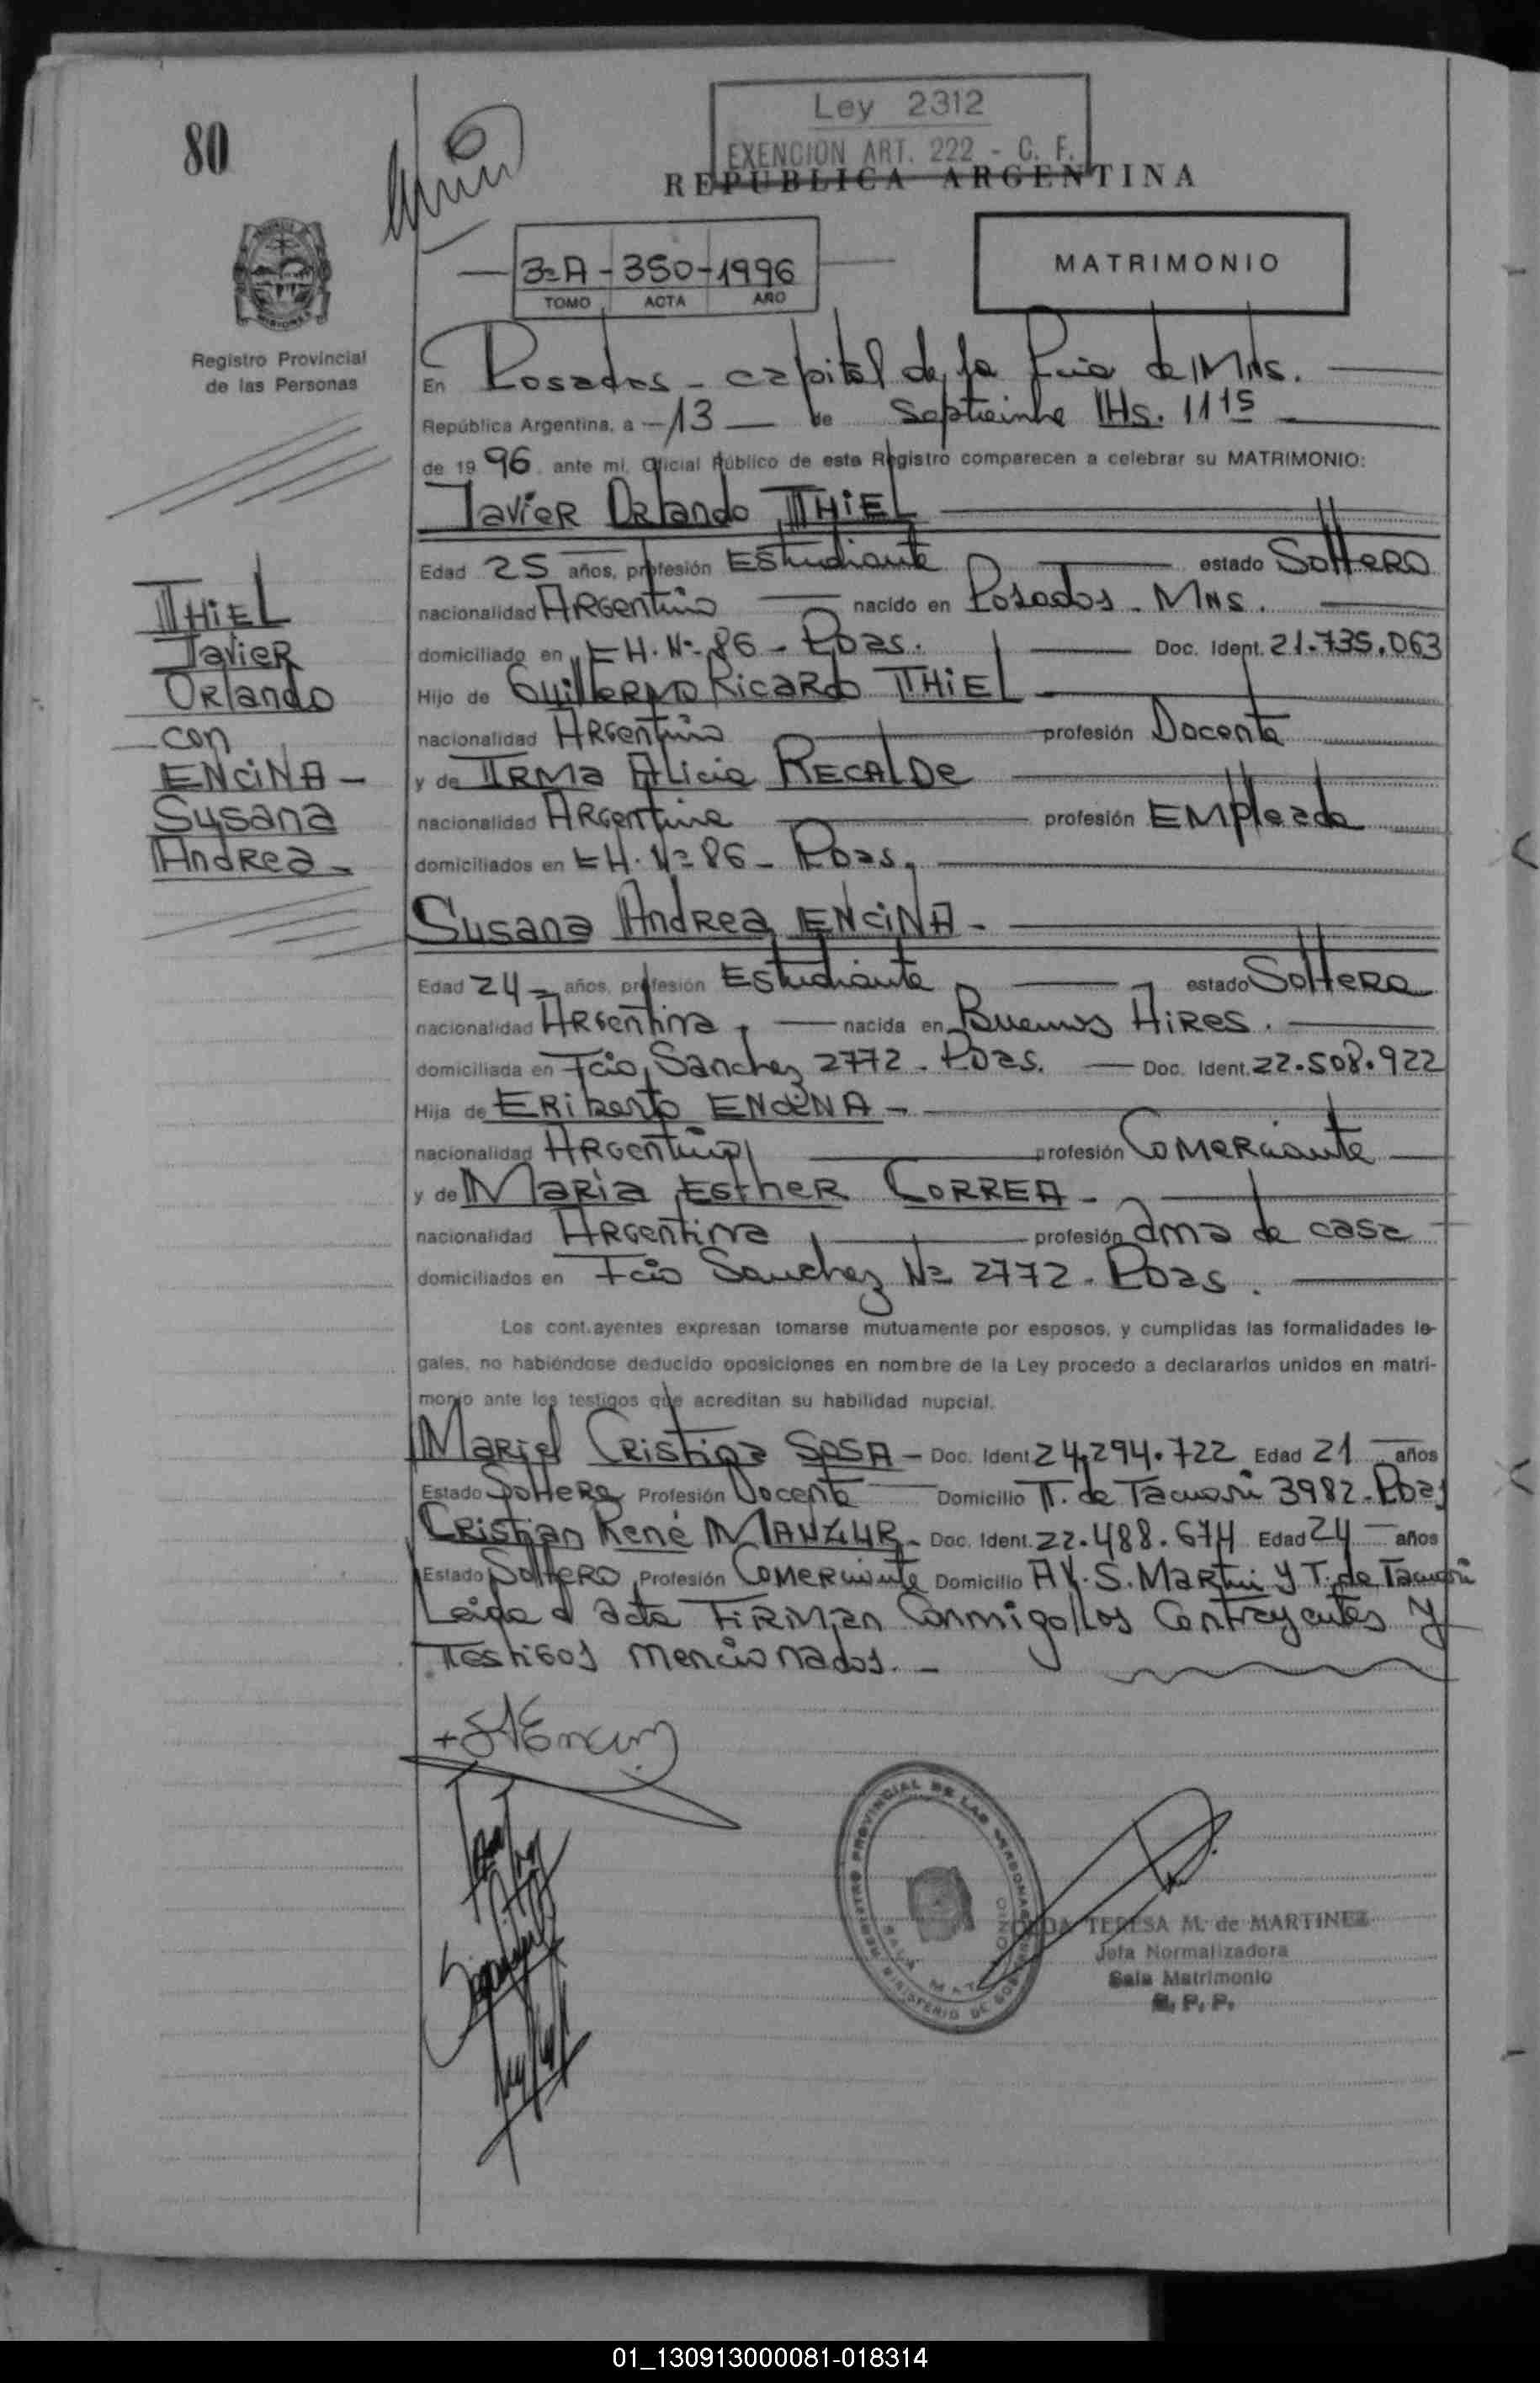 Ley 2312
EXENCION ART. 222 - C. F.
80
REPUBLICA ARGENTINA
3=A - 350 - 1996
TOMO ACTA AÑO
MATRIMONIO
Registro Provincial
de las Personas
En Posadas - capital de la Pcia de Mns.
República Argentina, a - 13 - de Septiembre Hs. 11 15
de 19 96 ante mí, Oficial Público de este Registro comparecen a celebrar su MATRIMONIO:
Javier Orlando THIEL
Edad 25 años, profesión Estudiante estado Soltero
nacionalidad Argentino nacido en Posadas - Mns.
domiciliado en CH. Nº 86 - Pdas. Doc. Ident. 21.735.063
Hijo de Guillermo Ricardo THIEL
nacionalidad Argentino profesión Docente
y de Irma Alicia RECALDE
nacionalidad Argentina profesión Empleada
domiciliados en CH. Nº 86 - Pdas.
THIEL
Javier
Orlando
con
ENCINA -
Susana
Andrea -
Susana Andrea ENCINA -
Edad 24 - años, profesión Estudiante estado Soltera
nacionalidad Argentina, nacida en Buenos Aires.
domiciliada en Fcio. Sanchez 2772 - Pdas. Doc. Ident. 22.508.922
Hija de Eriberto ENCINA -
nacionalidad Argentino profesión Comerciante
y de Maria Esther CORREA -
nacionalidad Argentina profesión Ama de casa
domiciliados en Fcio Sanchez Nº 2772 - Pdas.
Los cont.ayentes expresan tomarse mutuamente por esposos, y cumplidas las formalidades le-
gales, no habiéndose deducido oposiciones en nombre de la Ley procedo a declararlos unidos en matri-
monio ante los testigos que acreditan su habilidad nupcial.
Mariel Cristina SOSA - Doc. Ident 24.294.722 Edad 21 años
Estado Soltera Profesión Docente Domicilio T. de Tacuari 3982 - Pdas
Cristian René MANZUR - Doc. Ident. 22.488.674 Edad 24 años
Estado Soltero Profesión Comerciante Domicilio AV. S. Martin y T. de Tacuari
Leida el acta Firman Conmigo Los Contrayentes y
Testigos mencionados. -
REGISTRO PROVINCIAL DE LAS PERSONAS
MINISTERIO DE GOB
TERESA M. de MARTINEZ
Jefa Normalizadora
Sala Matrimonio
R. P. P.
01_130913000081-018314